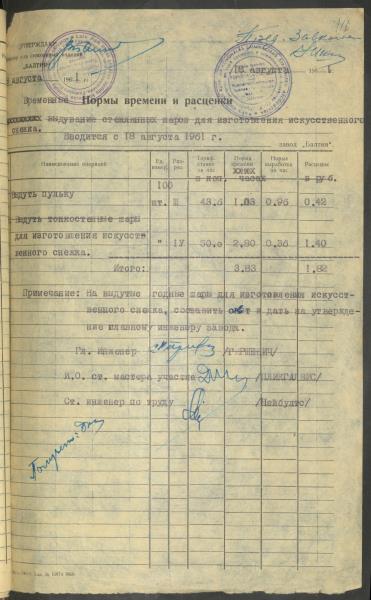 116
УТВЕРЖДАЮ:
"БАЛТИЯ"
августа 1961 г.
18 августа 196
Временные Нормы времени и расценки
выдувание стеклянных шаров для изготовления искусственного
снежка.
Вводится с 18 августа 1961 г.
завод „Балтия"
Наименование операций
Ед. измер.
Раз-ряд
Тариф. ставка за час
Норма времени
Норма выработки за час
Расценка
в коп, часах в руб.
Выдуть пульку 100 шт. III 43.6 1.03 0.96 0.42
Выдуть тонкостенные шары
для изготовления искусств
венного снежка. " IУ 50.0 2.80 0.36 1.40
Итого: 3.83 1.82
Примечание: На выдутые годные шары для изготовления искусст-
венного снежка, составить акт и дать на утвержде-
ние главному инженеру завода.
Гл. инженер /ГЕРШЕВИЧ/
И.О. ст. мастера участка
Ст. инженер по труду /Нейбултс/